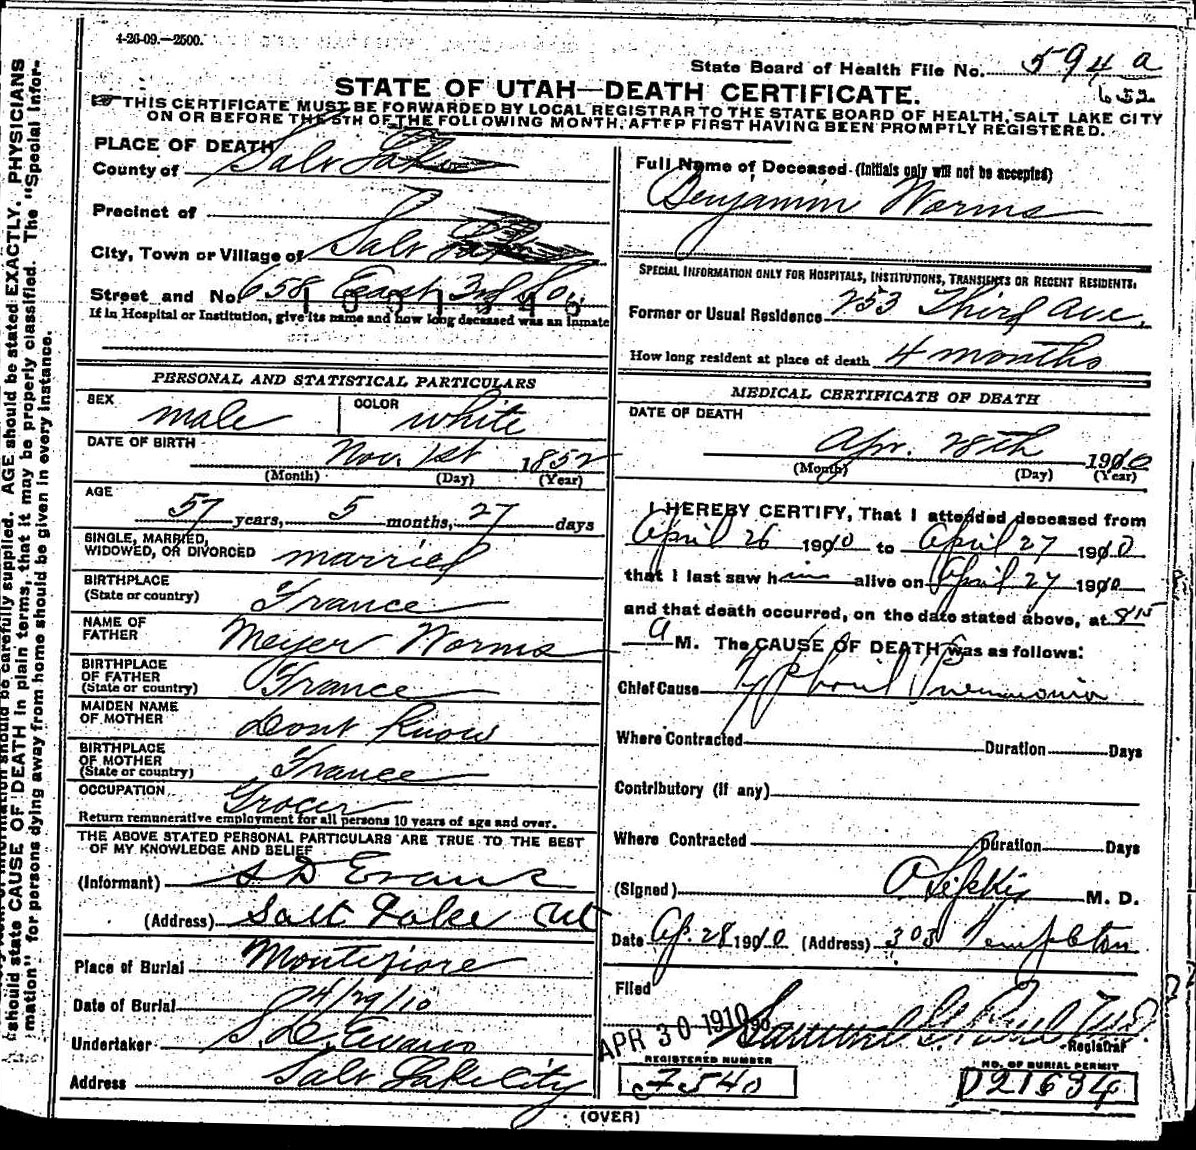 4-26-09.—2500.
State Board of Health File No. 594 a
652
STATE OF UTAH—DEATH CERTIFICATE.
THIS CERTIFICATE MUST BE FORWARDED BY LOCAL REGISTRAR TO THE STATE BOARD OF HEALTH, SALT LAKE CITY
ON OR BEFORE THE 5TH OF THE FOLLOWING MONTH, AFTER FIRST HAVING BEEN PROMPTLY REGISTERED.
PLACE OF DEATH
County of Salt Lake
Precinct of
City, Town or Village of Salt Lake
Street and No. 658 East 3rd So.
If in Hospital or Institution, give its name and how long deceased was an inmate
PERSONAL AND STATISTICAL PARTICULARS
SEX male COLOR white
DATE OF BIRTH Nov. 1st 1852
(Month) (Day) (Year)
AGE
57 years, 5 months, 27 days
SINGLE, MARRIED,
WIDOWED, OR DIVORCED married
BIRTHPLACE
(State or country) France
NAME OF
FATHER Meyer Worms
BIRTHPLACE
OF FATHER
(State or country) France
MAIDEN NAME
OF MOTHER Dont Know
BIRTHPLACE
OF MOTHER
(State or country) France
OCCUPATION Grocer
Return remunerative employment for all persons 10 years of age and over.
THE ABOVE STATED PERSONAL PARTICULARS ARE TRUE TO THE BEST
OF MY KNOWLEDGE AND BELIEF
(Informant) S D Evans
(Address) Salt Lake Ut
Place of Burial Montefiore
Date of Burial 4/29/10
Undertaker S. D. Evans
Address Salt Lake City
Full Name of Deceased (Initials only will not be accepted)
Benjamin Worms
SPECIAL INFORMATION ONLY FOR HOSPITALS, INSTITUTIONS, TRANSIENTS OR RECENT RESIDENTS.
Former or Usual Residence 253 Third Ave.
How long resident at place of death 4 months
MEDICAL CERTIFICATE OF DEATH
DATE OF DEATH
Apr. 28th 1910
(Month) (Day) (Year)
I HEREBY CERTIFY, That I attended deceased from
April 26 1910 to April 27 1910
that I last saw him alive on April 27 1910
and that death occurred, on the date stated above, at 815
a M. The CAUSE OF DEATH was as follows:
Chief Cause Typhoid Pneumonia
Where Contracted Duration Days
Contributory (if any)
Where Contracted Duration Days
(Signed) M. D.
Date Ap. 28 1910 (Address) 303 Templeton
Filed
APR 30 1910 Samuel G Paul M.D.
Registrar
REGISTERED NUMBER
7540
NO. OF BURIAL PERMIT
D21634
(OVER)
AGE should be stated EXACTLY. PHYSICIANS
should state CAUSE OF DEATH in plain terms, that it may be properly classified. The "Special Infor-
mation" for persons dying away from home should be given in every instance.